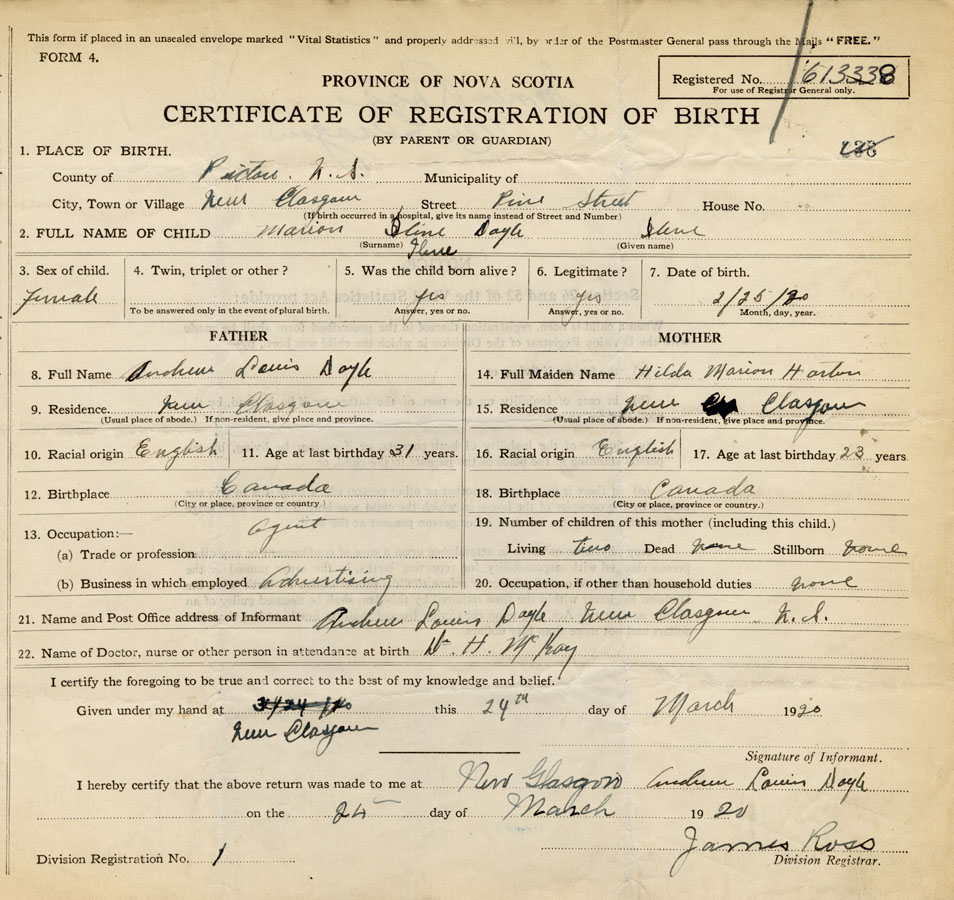 This form if placed in an unsealed envelope marked "Vital Statistics" and properly addressed will, by order of the Postmaster General pass through the Mails "FREE."
FORM 4.
Registered No. 613338
For use of Registrar General only.
PROVINCE OF NOVA SCOTIA
CERTIFICATE OF REGISTRATION OF BIRTH
(BY PARENT OR GUARDIAN)
1. PLACE OF BIRTH.
County of Pictou. N. S. Municipality of
City, Town or Village New Glasgow Street Pine Street House No.
(If birth occurred in a hospital, give its name instead of Street and Number)
2. FULL NAME OF CHILD Marion Ilene Doyle Ilene
(Surname) Ilene (Given name)
3. Sex of child. 4. Twin, triplet or other? 5. Was the child born alive? 6. Legitimate? 7. Date of birth.
Female yes yes 2/25/20
To be answered only in the event of plural birth. Answer, yes or no. Answer, yes or no. Month, day, year.
FATHER MOTHER
8. Full Name Andrew Louis Doyle 14. Full Maiden Name Hilda Marion Horton
9. Residence. New Glasgow 15. Residence New Glasgow
(Usual place of abode.) If non-resident, give place and province. (Usual place of abode.) If non-resident, give place and province.
10. Racial origin English 11. Age at last birthday 31 years. 16. Racial origin English 17. Age at last birthday 23 years
12. Birthplace Canada 18. Birthplace Canada
(City or place, province or country.) (City or place, province or country.)
13. Occupation:— Agent 19. Number of children of this mother (including this child.)
(a) Trade or profession Living two Dead none Stillborn none
(b) Business in which employed Advertising 20. Occupation, if other than household duties none
21. Name and Post Office address of Informant Andrew Louis Doyle New Glasgow N. S.
22. Name of Doctor, nurse or other person in attendance at birth Dr. H. McKay
I certify the foregoing to be true and correct to the best of my knowledge and belief.
Given under my hand at 3/24/20 this 24th day of March 1920
New Glasgow
Signature of Informant.
I hereby certify that the above return was made to me at New Glasgow Andrew Louis Doyle
on the 24 day of March 1920
James Ross
Division Registration No. 1 Division Registrar.